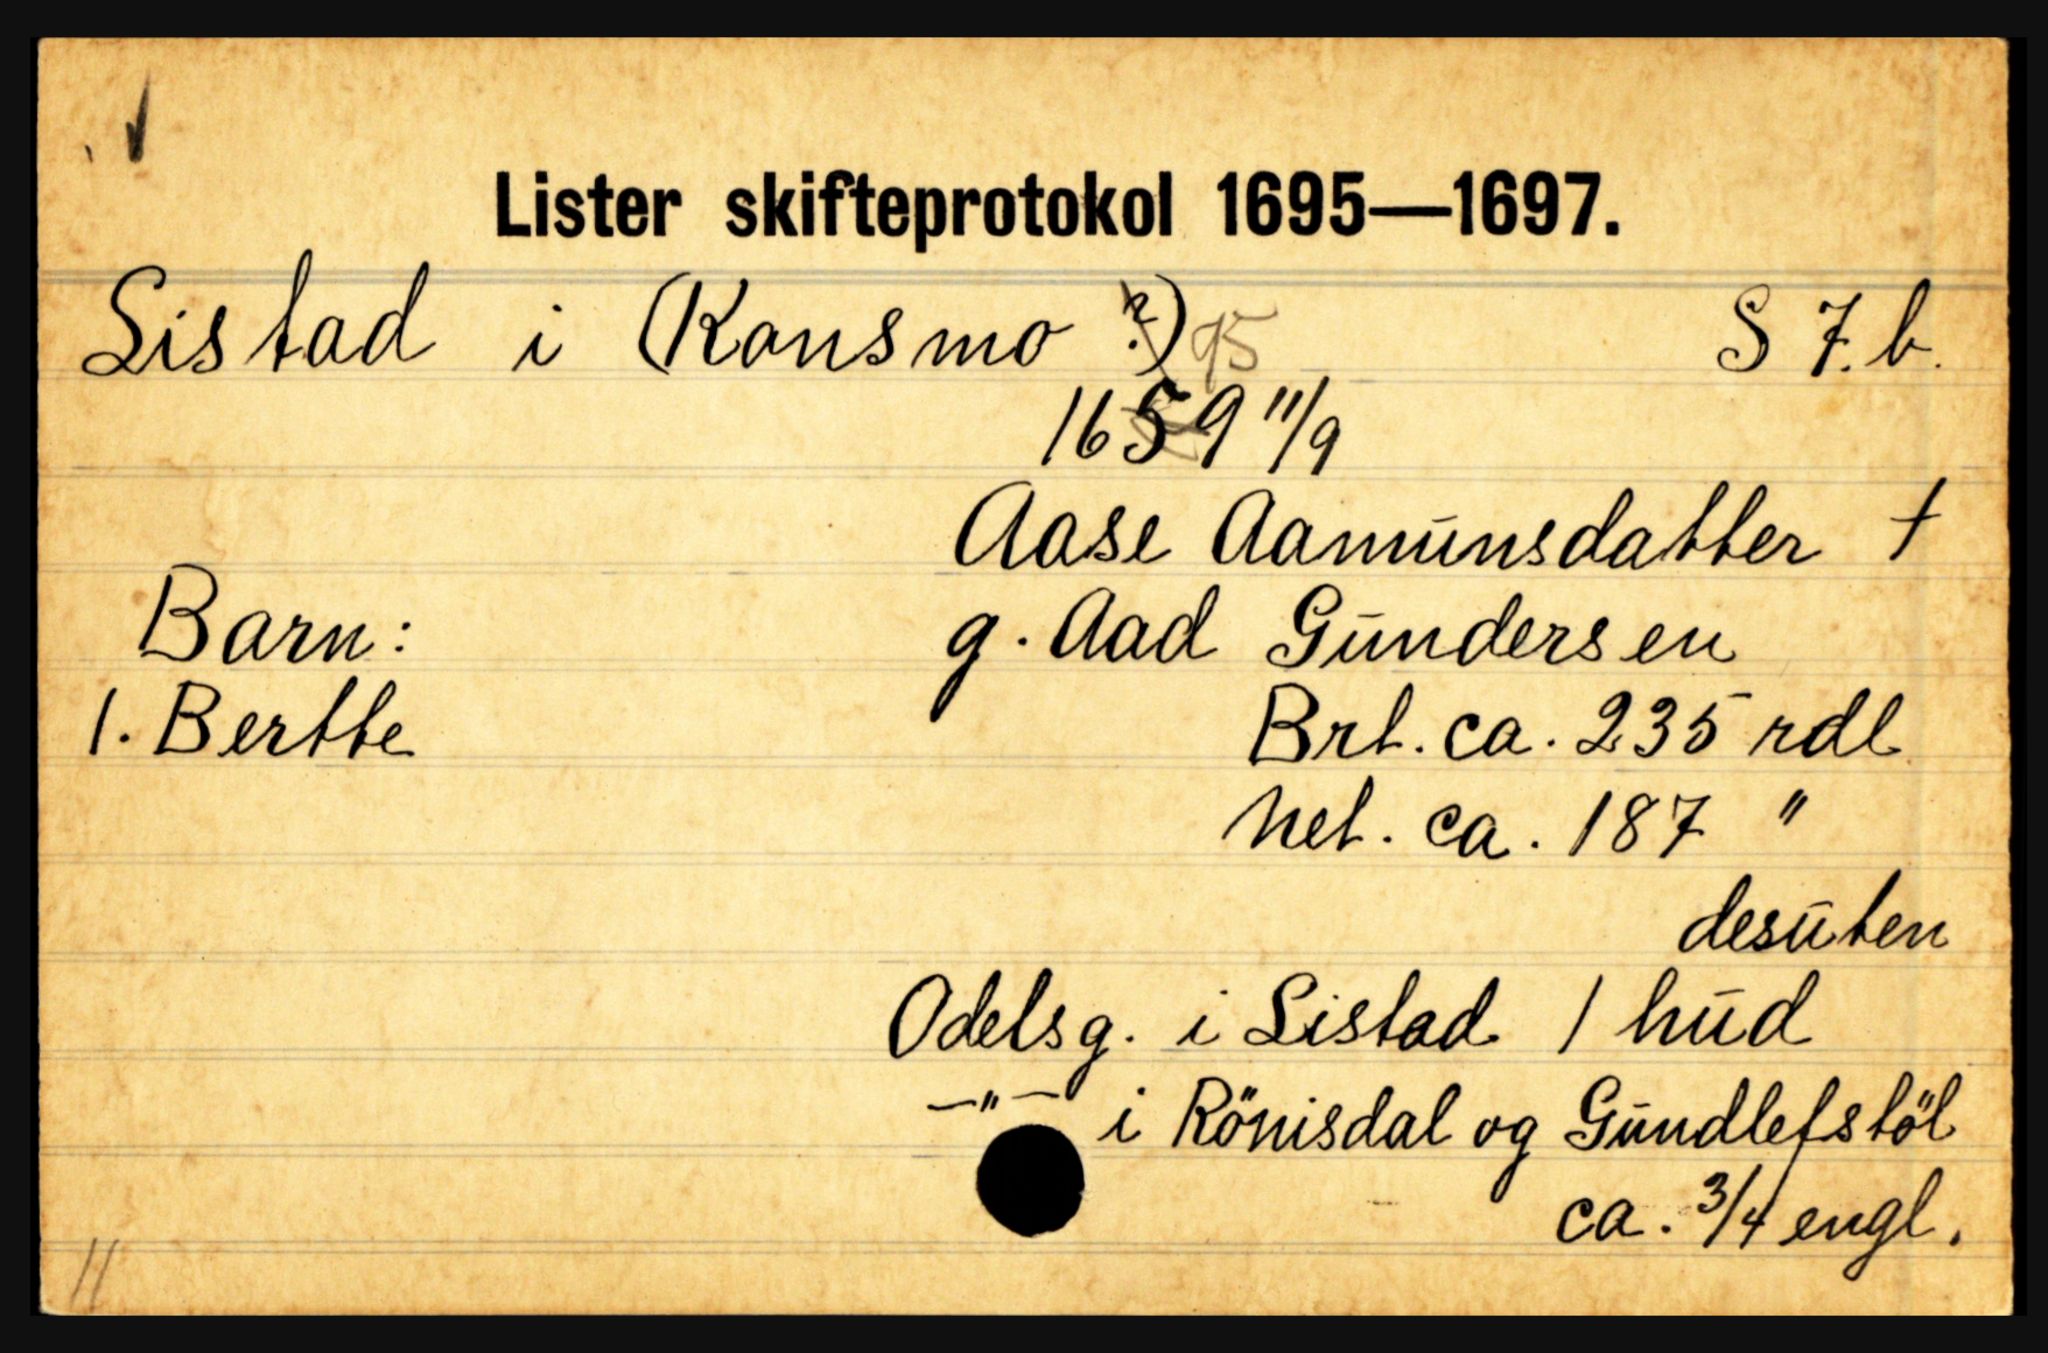 Lister skifteprotokol 1695—1697.
Listad i (Konsmo ?) 95 S 7.b.
1659 11/9
Aase Aamunsdatter †
Barn: g. Aad Gundersen
1. Bertte Brt. ca. 235 rdl
Net. ca. 187 "
desuten
Odelsg. i Listad 1 hud
—"— i Rönisdal og Gundlefstöl
ca. 3/4 engl.
11